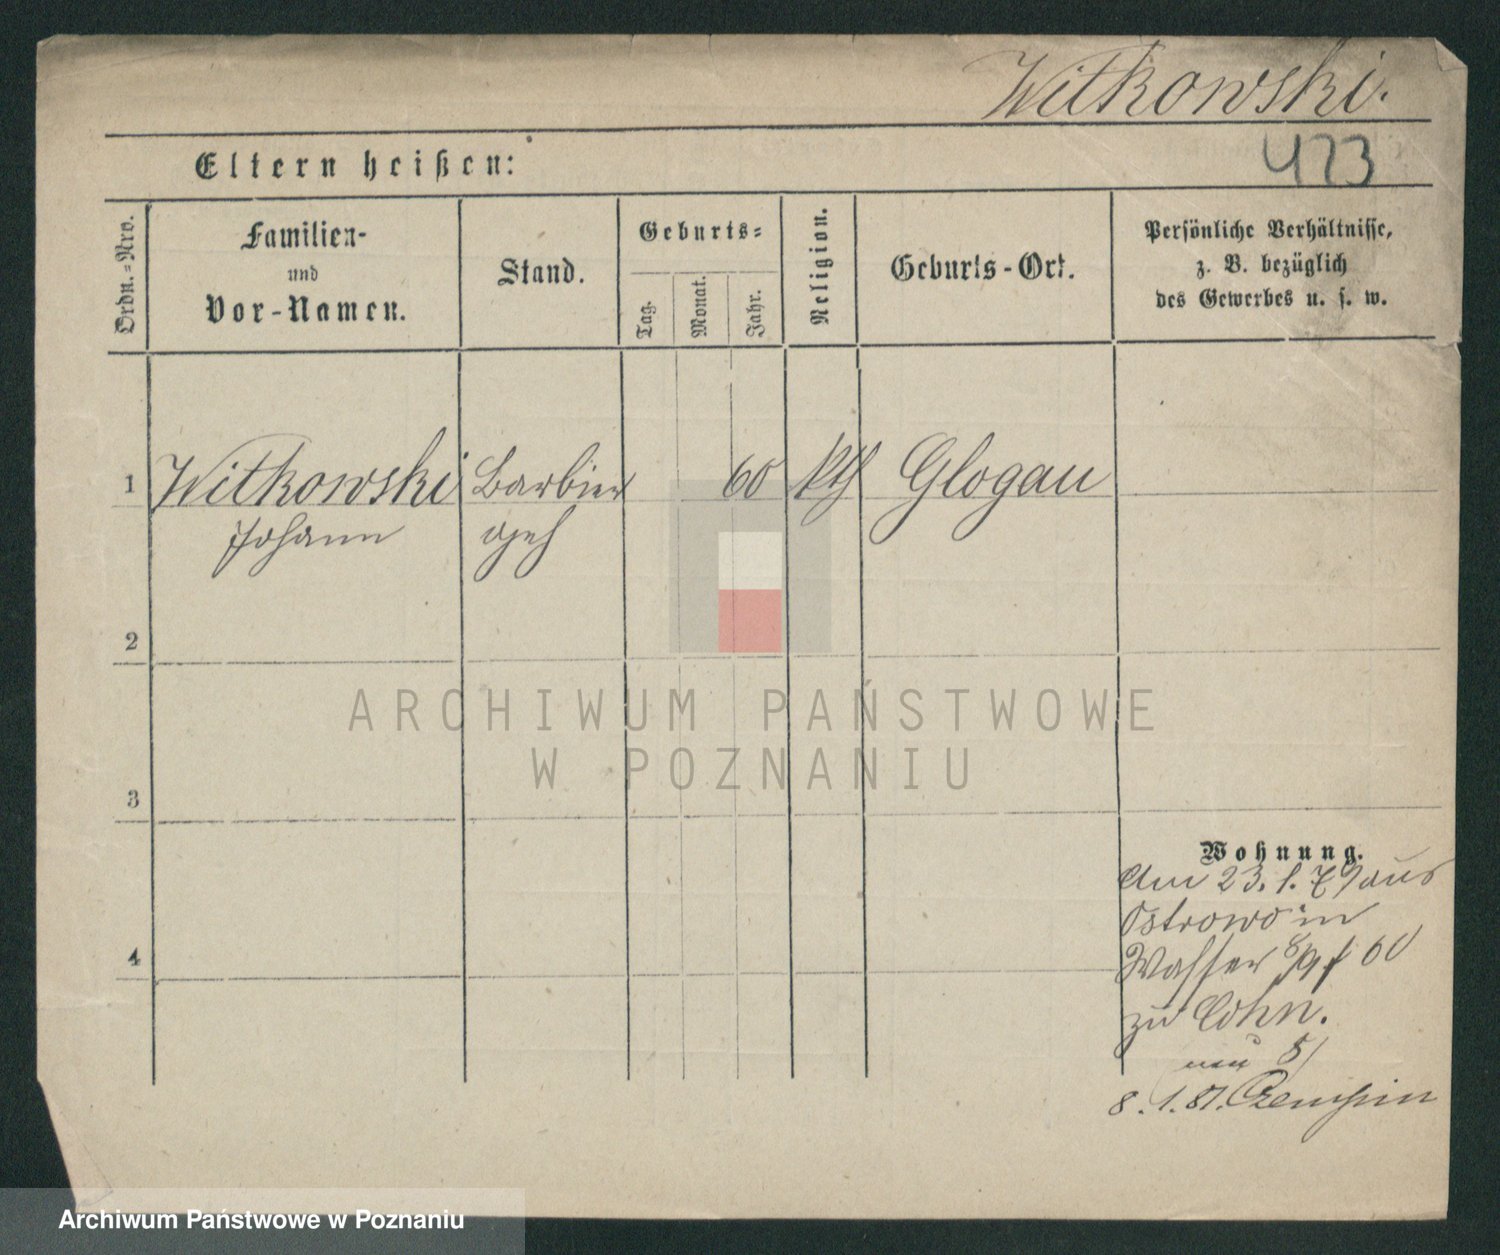 Witkowski.
473
Eltern heißen:
Ordn.=Nro.
Familien-
und
Vor-Namen.
Stand.
Geburts=
Tag.
Monat.
Jahr.
Religion.
Geburts-Ort.
Persönliche Verhältnisse,
z. B. bezüglich
des Gewerbes u. s. w.
1 Witkowski Barbier 60 kth Glogau
Johann geh
2
3
4
Wohnung.
Am 23. 1. 79 aus
Ostrowo in
Wasser 8/9 f 60
zu Cohn.
neu 5/
8. 1. 81. Czempin
ARCHIWUM PAŃSTWOWE
W POZNANIU
Archiwum Państwowe w Poznaniu